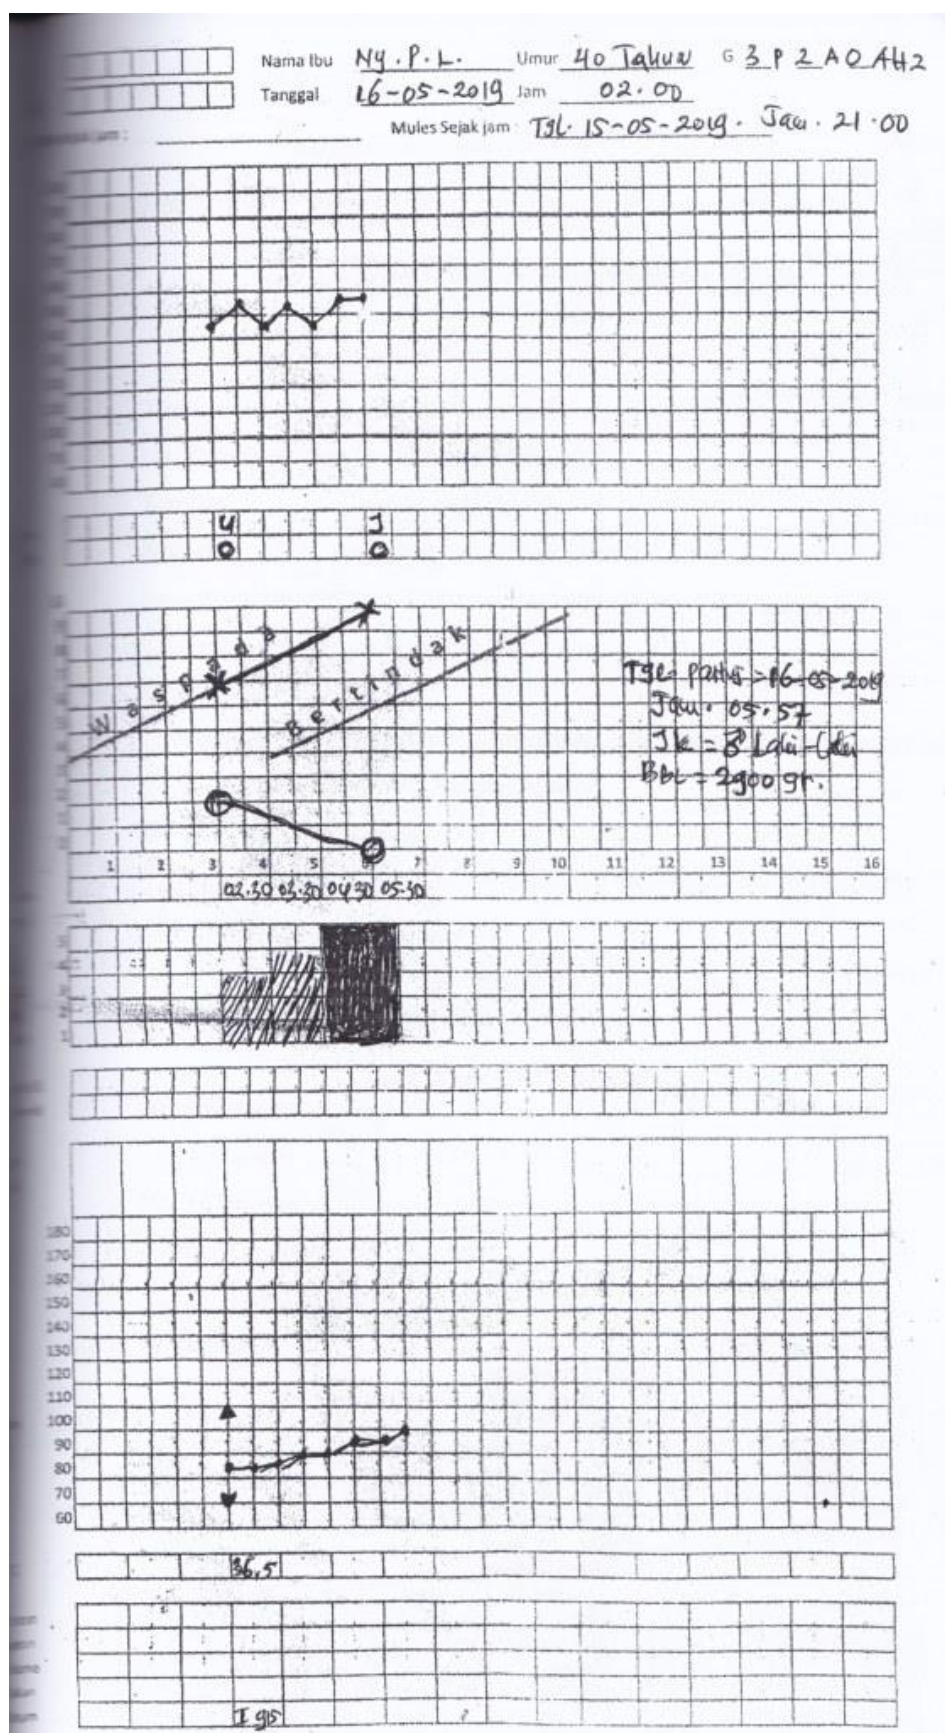 Nama Ibu Ny. P. L. Umur 40 Tahun G 3 P 2 A 0 AH2
Tanggal 16-05-2019 Jam 02.00
Mules Sejak jam : Tgl. 15-05-2019. Jam. 21.00
U J
0 0
Waspada
Bertindak
Tgl partus > 16-05-2019
Jam. 05.57
Jk = ♂ Laki-laki
BBL = 2900 gr.
1 2 3 4 5 6 7 8 9 10 11 12 13 14 15 16
02.30 03.30 04.30 05.30
180
170
160
150
140
130
120
110
100
90
80
70
60
36,5